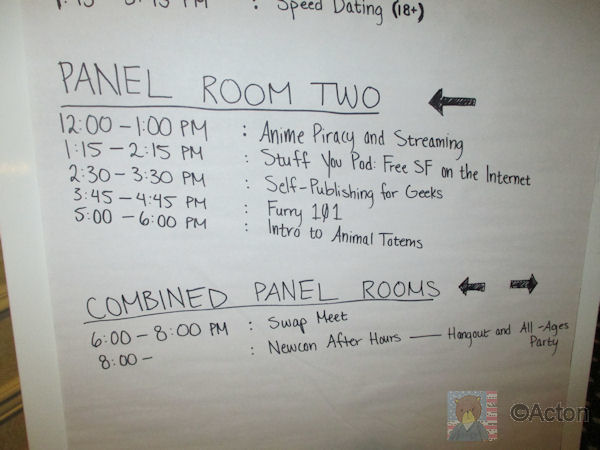 : Speed Dating (18+)
PANEL ROOM TWO
12:00 – 1:00 PM : Anime Piracy and Streaming
1:15 – 2:15 PM : Stuff You Pod: Free SF on the Internet
2:30 – 3:30 PM : Self-Publishing for Geeks
3:45 – 4:45 PM : Furry 101
5:00 – 6:00 PM : Intro to Animal Totems
COMBINED PANEL ROOMS
6:00 – 8:00 PM : Swap Meet
8:00 – : Newcon After Hours — Hangout and All-Ages
Party
©Acton